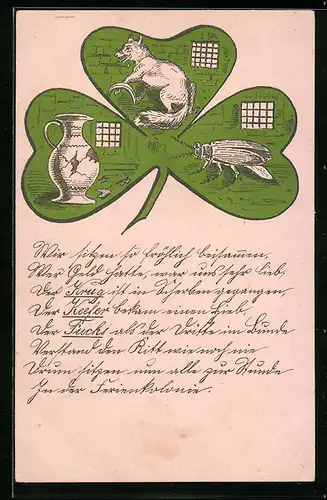 Wir sitzen so fröhlich beisammen,
Wer Geld hatte, war uns sehr lieb,
Der Krug ist in Scherben gegangen,
Der Kæfer bekam einen Hieb,
Der Fuchs als der Dritte im Bunde
Verstand den Kitt wie noch nie
Drum sitzen nun alle zur Stunde
In der Ferienkolonie.